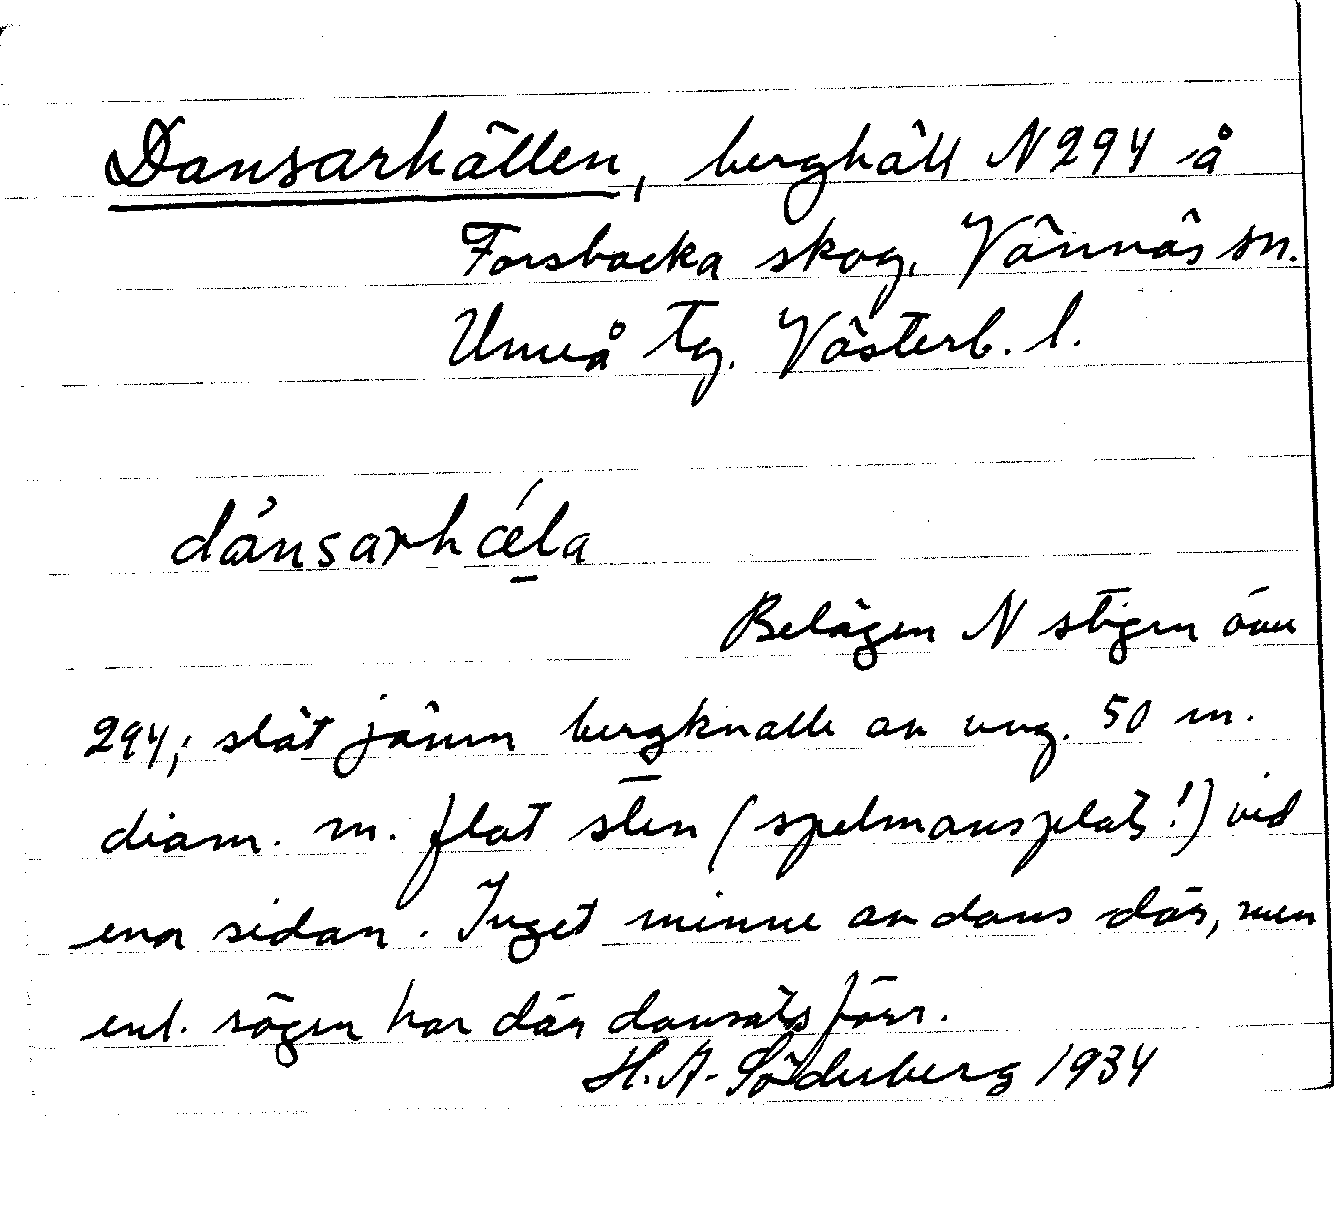 Dansarhällen, berghäll N 294 å
Forsbacka skog, Vännäs sn.
Umeå tg. Västerb. l.
dánsarhǽla
Belägen N stigen över
294; slät jämn bergknalle av ung. 50 m.
diam. m. flat sten (spelmansplats!) vid
ena sidan. Inget minne av dans där, men
enl. sägen har där dansats förr.
H. A. Söderberg 1934